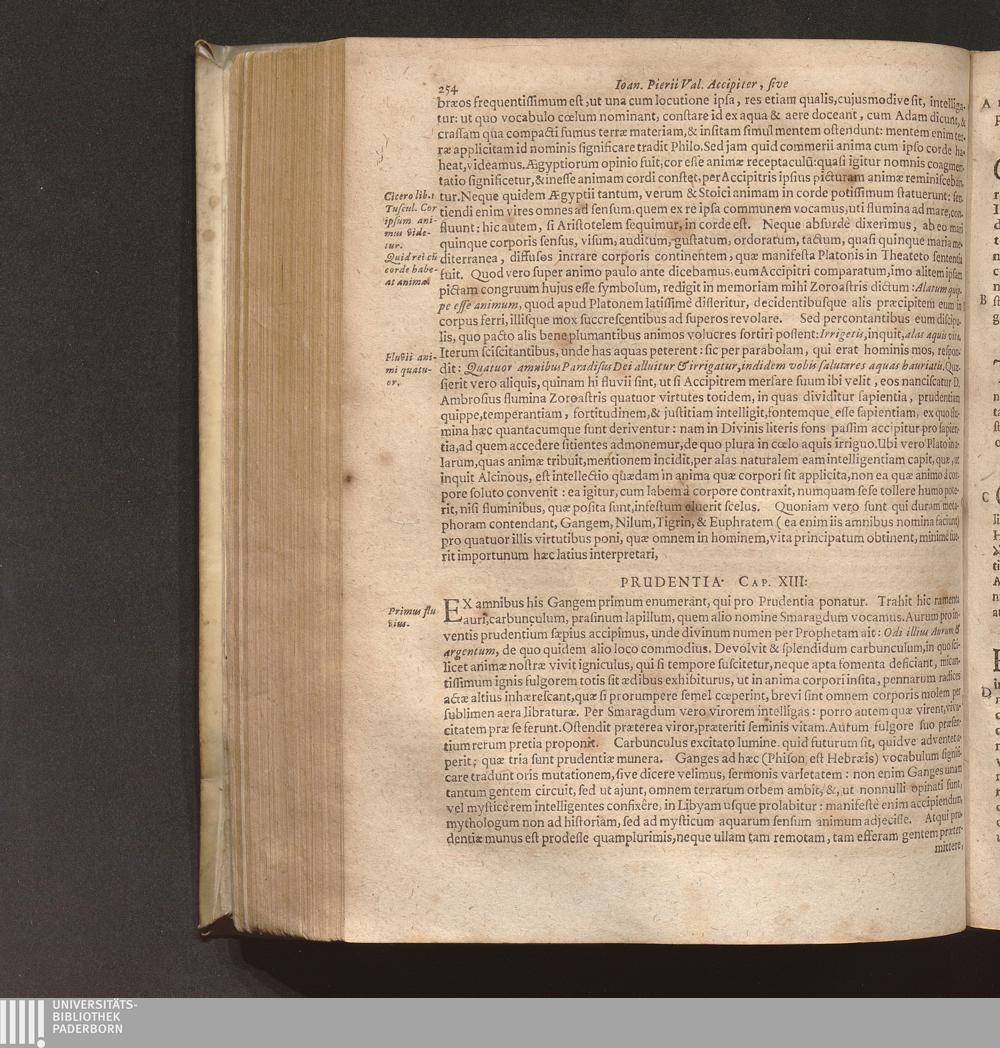 254
Ioan. Pierii Val. Accipiter, sive
bræos frequentissimum est, ut una cum locutione ipsa, res etiam qualis, cujusmodive sit, intelliga-
tur: ut quo vocabulo cœlum nominant, constare id ex aqua & aere doceant, cum Adam dicunt, &
crassam qua compacti sumus terræ materiam, & insitam simul mentem ostendunt: mentem enim ter-
ræ applicitam id nominis significare tradit Philo. Sed jam quid commercii anima cum ipso corde ha-
heat, videamus. Ægyptiorum opinio fuit, cor esse animæ receptaculū: quasi igitur nomnis coagmen-
tatio significetur, & inesse animam cordi constet, per Accipitris ipsius picturam animæ reminisceban-
Cicero lib. 1
tur. Neque quidem Ægyptii tantum, verum & Stoici animam in corde potissimum statuerunt: sen-
Tuscul. Cor
tiendi enim vires omnes ad sensum, quem ex re ipsa communem vocamus, uti flumina ad mare, con-
ipsum ani-
fluunt: hic autem, si Aristotelem sequimur, in corde est. Neque absurdè dixerimus, ab eo mari
mus vide-
tur.
quinque corporis sensus, visum, auditum, gustatum, ordoratum, tactum, quasi quinque maria me-
Quid rei cū
diterranea, diffusos intrare corporis continentem, quæ manifesta Platonis in Theateto sententia
corde habe-
fuit. Quod vero super animo paulo ante dicebamus, eum Accipitri comparatum, imo alitem ipsam
at anima.
pictam congruum hujus esse symbolum, redigit in memoriam mihi Zoroastris dictum: Alatum quip-
pe esse animum, quod apud Platonem latissimè disseritur, decidentibusque alis præcipitem eum in
corpus ferri, illisque mox succrescentibus ad superos revolare. Sed percontantibus eum discipu-
lis, quo pacto alis bene plumantibus animos volucres sortiri possent: Irrigetis, inquit, alas aquis vitæ.
Fluvii ani-
Iterum sciscitantibus, unde has aquas peterent: sic per parabolam, qui erat hominis mos, respon-
mi quatu-
dit: Quatuor amnibus Paradisus Dei alluitur & irrigatur, indidem vobis salutares aquas hauriatis. Quæ-
or.
sierit vero aliquis, quinam hi fluvii sint, ut si Accipitrem mersare suum ibi velit, eos nanciscatur D.
Ambrosius flumina Zoroastris quatuor virtutes totidem, in quas dividitur sapientia, prudentiam
quippe, temperantiam, fortitudinem, & justitiam intelligit, fontemque esse sapientiam, ex quo flu-
mina hæc quantacumque sunt deriventur: nam in Divinis literis fons passim accipitur pro sapien-
tia, ad quem accedere sitientes admonemur, de quo plura in cœlo aquis irriguo. Ubi vero Plato in a-
larum, quas animæ tribuit, mentionem incidit, per alas naturalem eam intelligentiam capit, quæ, ut
inquit Alcinous, est intellectio quædam in anima quæ corpori sit applicita, non ea quæ animo à cor-
pore soluto convenit: ea igitur, cum labem à corpore contraxit, numquam sese tollere humo pote-
rit, nisi fluminibus, quæ posita sunt, infestum eluerit scelus. Quoniam vero sunt qui duram meta-
phoram contendant, Gangem, Nilum, Tigrin, & Euphratem (ea enim iis amnibus nomina faciunt)
pro quatuor illis virtutibus poni, quæ omnem in hominem, vita principatum obtinent, minimè fue-
rit importunum hæc latius interpretari,
PRUDENTIA. CAP. XIII:
Primus flu
EX amnibus his Gangem primum enumerant, qui pro Prudentia ponatur. Trahit hic ramenta
vius.
auri, carbunculum, prasinum lapillum, quem alio nomine Smaragdum vocamus. Aurum pro in-
ventis prudentium sæpius accipimus, unde divinum numen per Prophetam ait: Odi illius Aurum &
argentum, de quo quidem alio loco commodius. Devolvit & splendidum carbunculum, in quo sci-
licet animæ nostræ vivit igniculus, qui si tempore suscitetur, neque apta fomenta deficiant, mican-
tissimum ignis fulgorem totis sit ædibus exhibiturus, ut in anima corpori insita, pennarum radices
actæ altius inhærescant, quæ si prorumpere semel cœperint, brevi sint omnem corporis molem per
sublimen aera libraturæ. Per Smaragdum vero virorem intelligas: porro autem quæ virent, viva-
citatem præ se ferunt. Ostendit præterea viror, præteriti seminis vitam. Aurum fulgore suo præsen-
tium rerum pretia proponit. Carbunculus excitato lumine quid futurum sit, quidve adventet a-
perit; quæ tria sunt prudentiæ munera. Ganges ad hæc (Phison est Hebræis) vocabulum signifi-
care tradunt oris mutationem, sive dicere velimus, sermonis varietatem: non enim Ganges unam
tantum gentem circuit, sed ut ajunt, omnem terrarum orbem ambit, &, ut nonnulli opinati sunt,
vel mysticè rem intelligentes confixêre, in Libyam usque prolabitur: manifestè enim accipiendum,
mythologum non ad historiam, sed ad mysticum aquarum sensum animum adjecisse. Atqui pru-
dentiæ munus est prodesse quamplurimis, neque ullam tam remotam, tam efferam gentem præter-
mittere,
A
B
C
D
UNIVERSITÄTS-
BIBLIOTHEK
PADERBORN